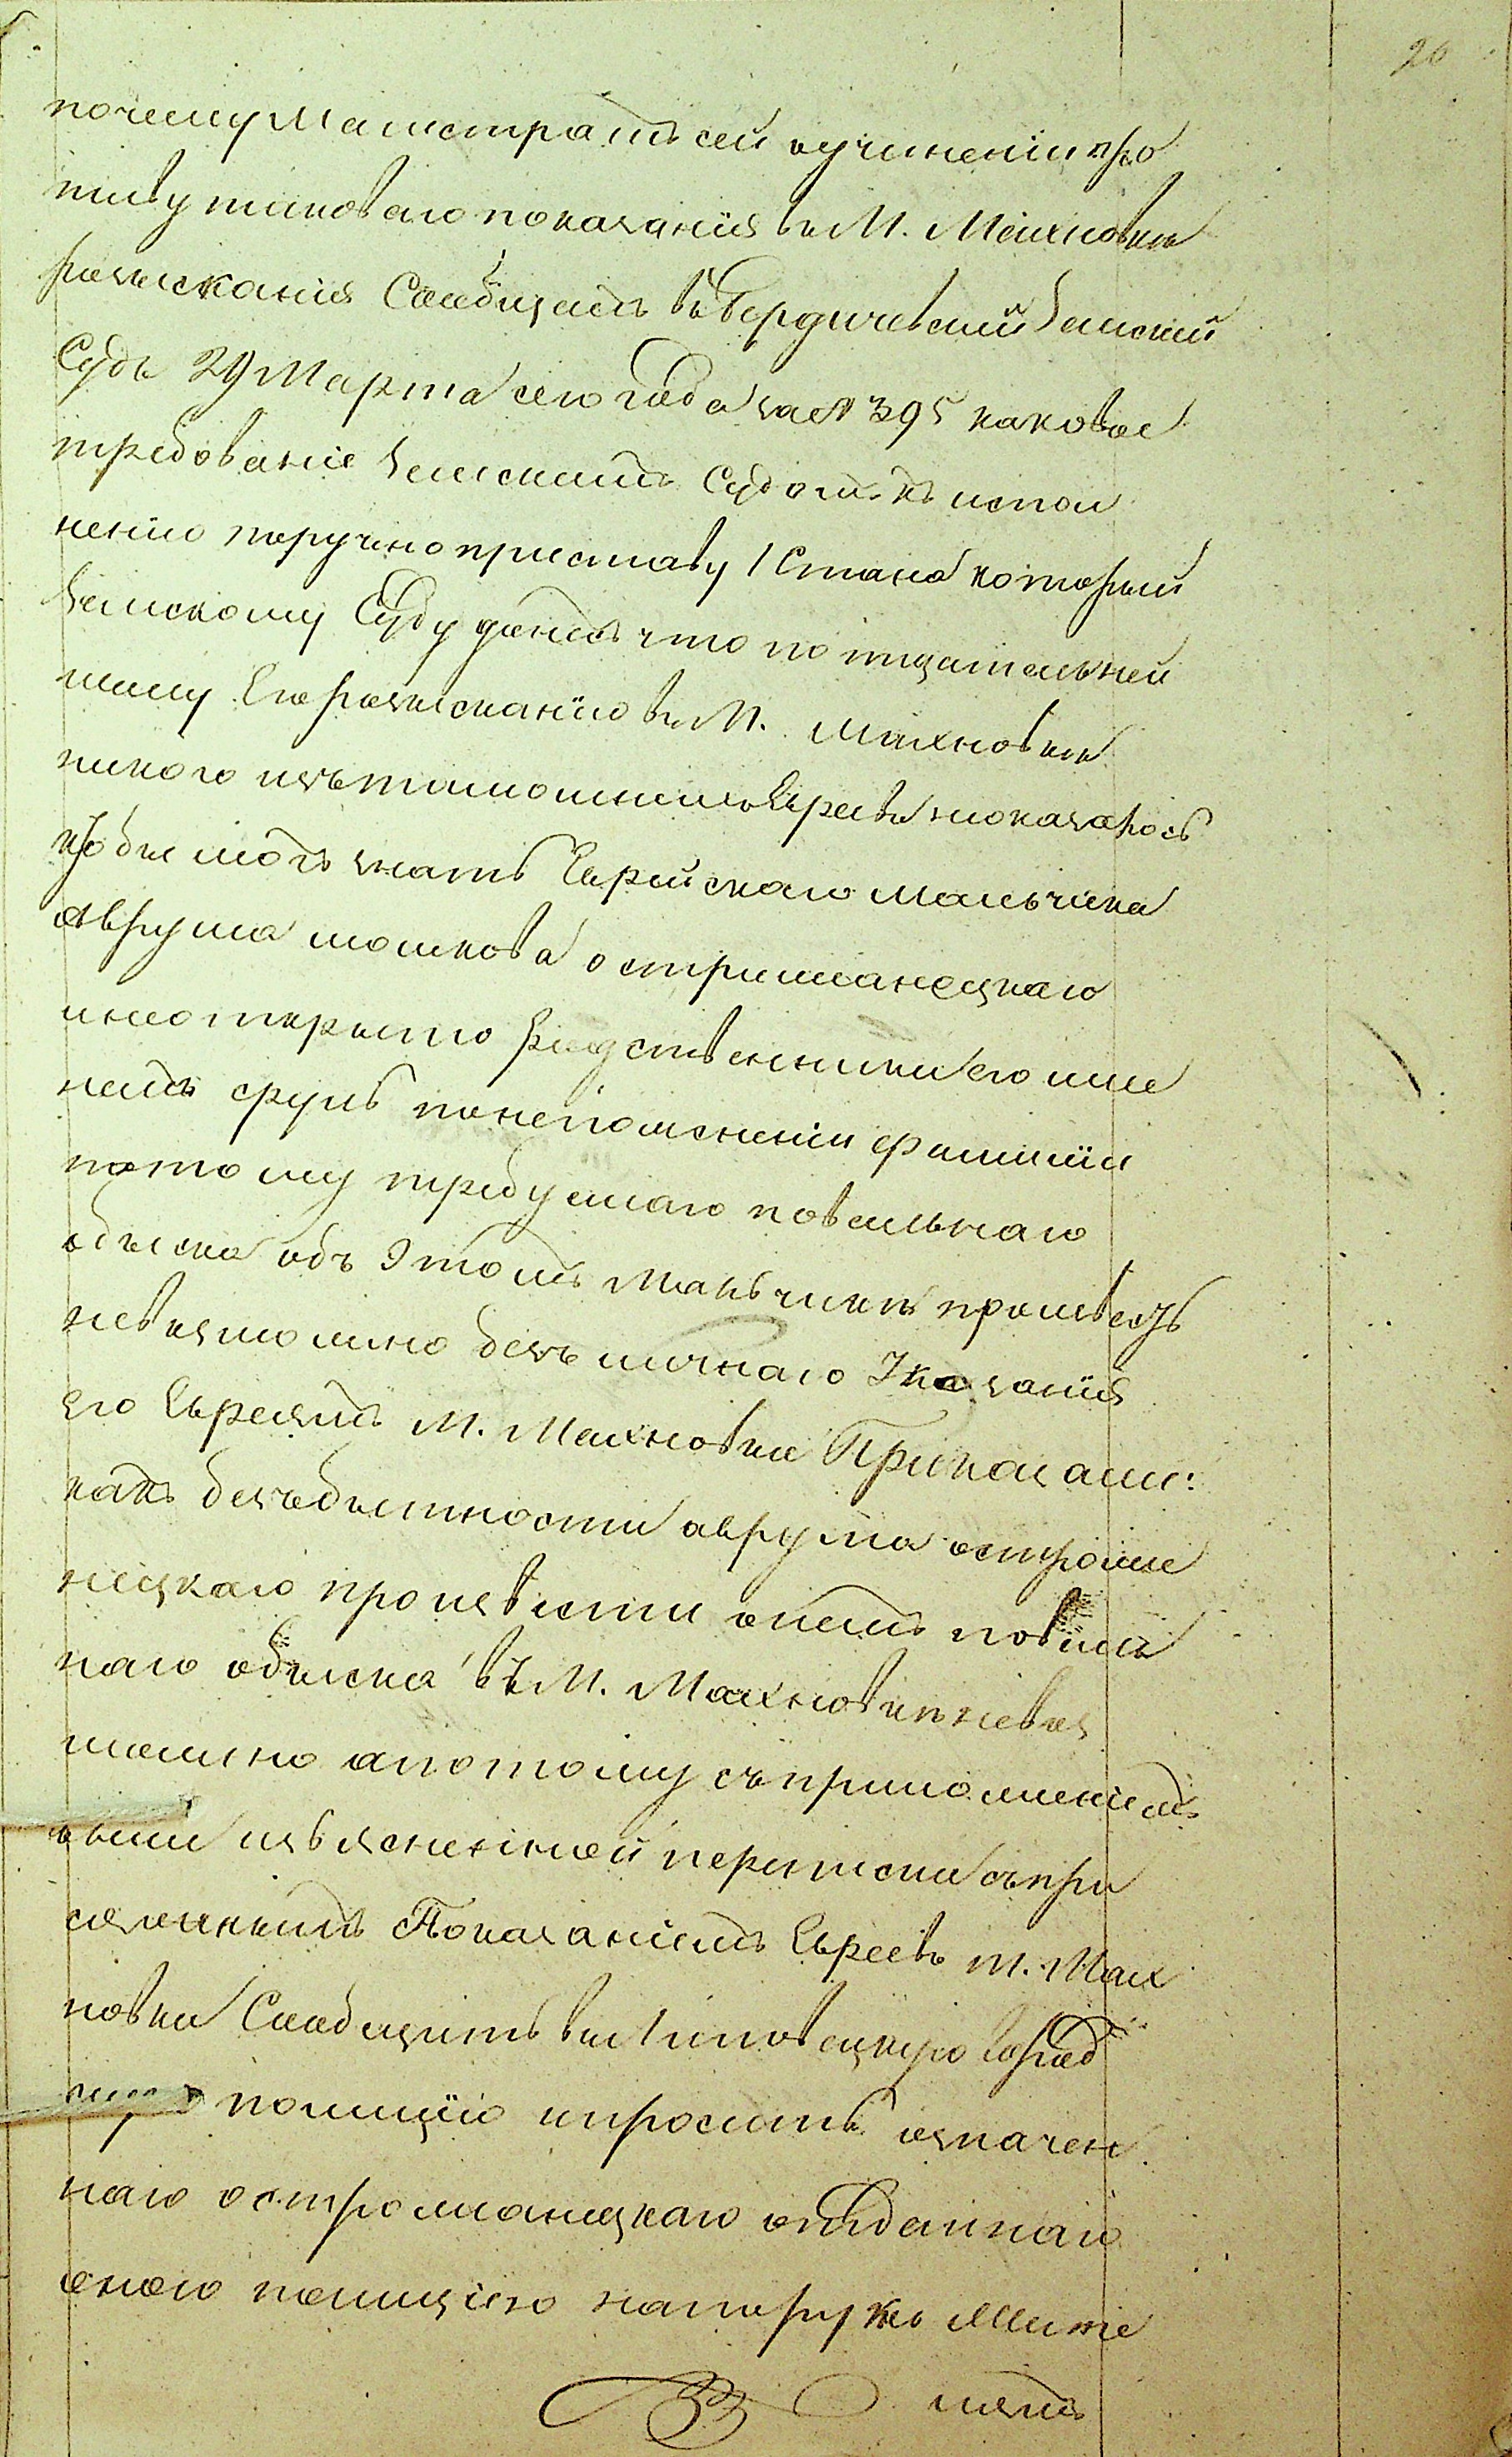 20
почему Магистратъ сей о учиненіи про
тиву таковаго показанія въ М. Махновкѣ
разысканія Сообщалъ въ Бердичевскій Земскій
Судъ 29 Марта сего года за № 395 каковое
требованіе Земскимъ Судомъ къ испол
нению поручено приставу 1 Стана который
Земскому Суду донесъ что по тщательней
шему Его разысканію въ М. Махновки
никого изъ тамошнихъ Евреевъ неоказалось
кто бы могъ знать Еврейскаго мальчика
Аврума мошкова остриманецкаго
и неоткрыто родственники его име
немъ сруль понепомненіи фамиліи
потому требуемаго повальнаго
обыска объ Этомъ Мальчикѣ произвесть
невозможно безъ личнаго Указанія
его Евреямъ М. Махновки Приказали:
какъ безъ бытности аврума острома
нецкаго произвести онемъ поваль
наго обыска въ М. Махновкѣ невоз
можно а потому съ приложеніемъ
оной изъясненной переписки съ при
сяжнымъ Показаніемъ Евреевъ м. Мах
новки Сообщить въ Липовецкую Город
скую полицію и просить означен
наго остроманецкаго отданнаго
оною полициею на поруки Мѣще
намъ